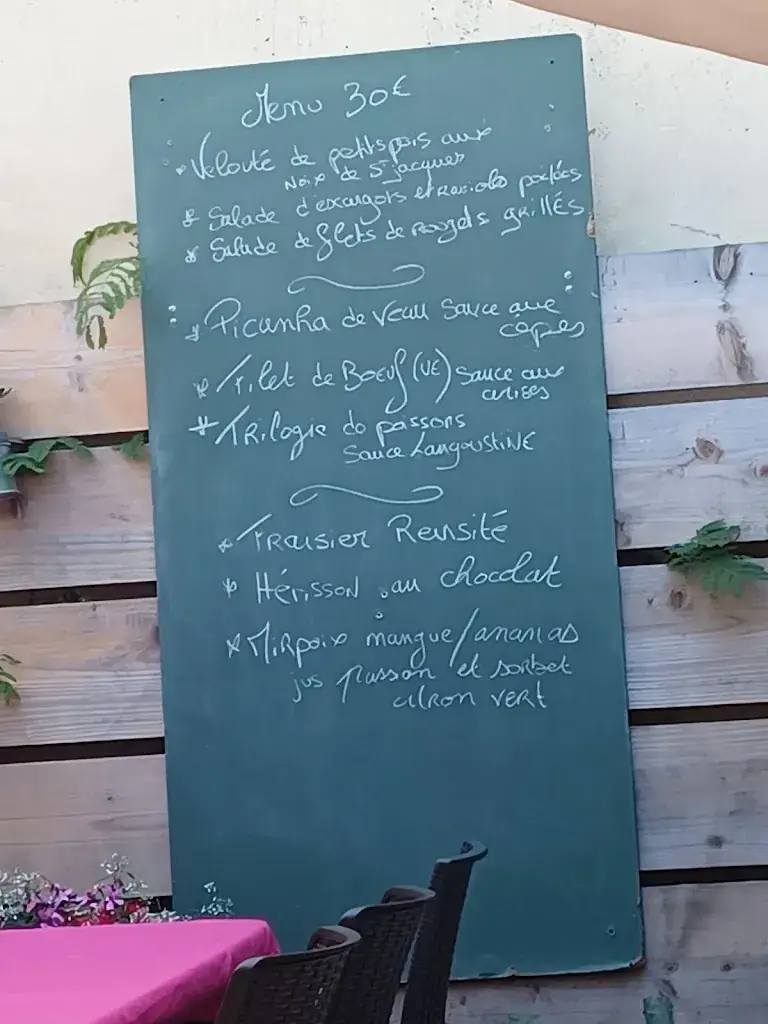 Menu 30€
* Velouté de petits pois aux
Noix de St jacques
* Salade d'excargots et ravioles poêlées
* Salade de filets de rougets grillés
* Picanha de Veau sauce aux
cèpes
* Filet de Boeuf (UE) sauce aux
* Trilogie de poissons
Sauce Langoustine
* Fraisier Revisité
* Hérisson au chocolat
* Mirpoix mangue/ananas
jus passion et sorbet
citron vert